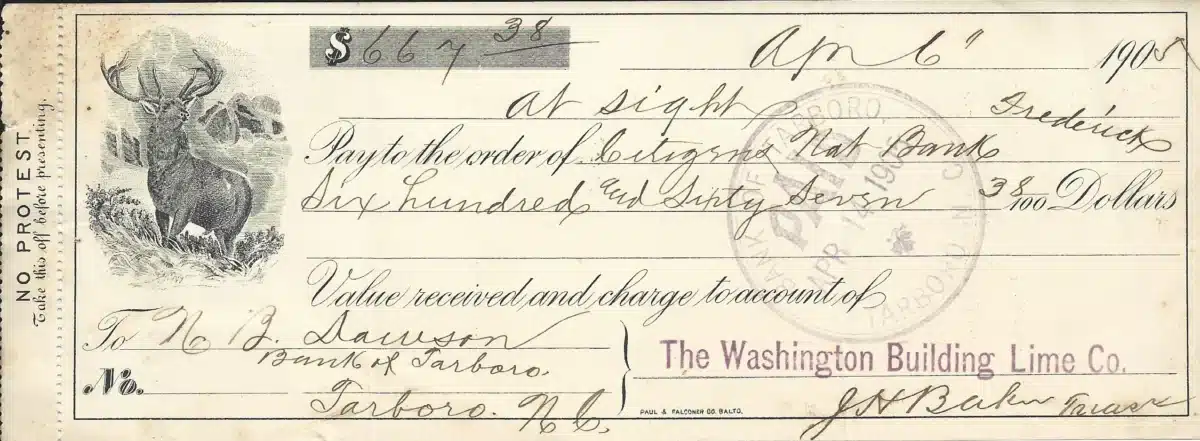 NO PROTEST
Take this off before presenting.
$ 667 38
Apr 6" 1905
at sight
Pay to the order of Citizens Nat Bank Frederick
Six hundred and Sixty Seven 38/100 Dollars
Value received and charge to account of
To N B. Dawson
Bank of Tarboro.
No.
Tarboro. N C.
The Washington Building Lime Co.
J H Baker Treas
PAUL & FALCONER CO. BALTO.
BANK OF TARBORO,
PAID
APR 14 1905
TARBORO, N. C.